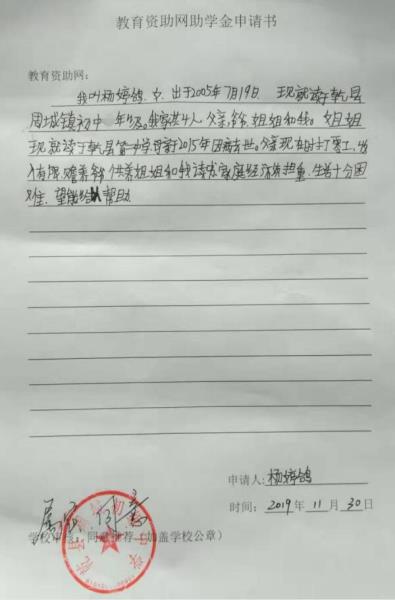 教育资助网助学金申请书
教育资助网：
我叫杨婷鸽，女，出于2005年7月19日，现就读于乾县
周城镇初中 年级。我家共4人，父亲，爷，姐姐和我。姐
现就读于乾县第一中学，母亲于2015年因病去世。父亲现在打零工，收
入微薄，赡养爷，供养姐姐和我读书，家庭经济负担重，生活十分困
难。望能给以帮助。
申请人：杨婷鸽
时间：2019年11月30日
学校审查，同意推荐（加盖学校公章）